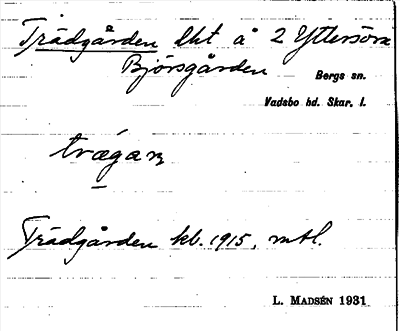 Trädgården lht å 2 Yttersöra
Björsgården
Bergs sn.
Vadsbo hd. Skar. l.
trǽgaɳ
Trädgården kb. 1915, mtl.
L. MADSÉN 1931